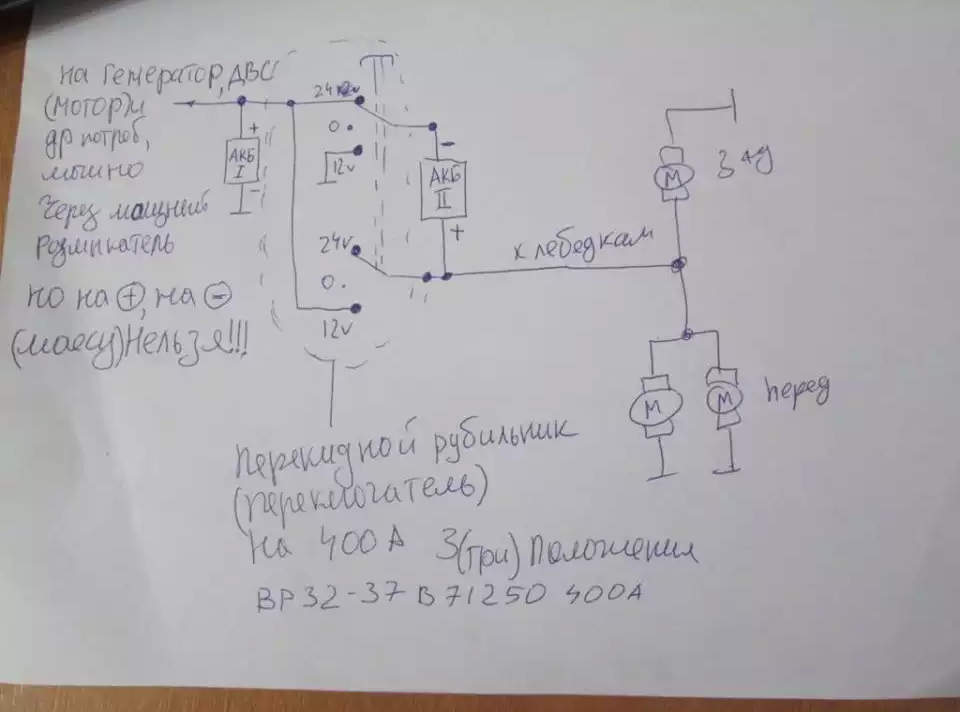 на генератор, ДВС
(мотор) и
др потреб,
можно
Через мощный
розмикатель
но на ⊕, на ⊖
(массу) Нельзя!!!
+
АКБ
I
-
24v
0.
12v
24v
0.
12v
-
АКБ
II
+
к лебедкам
М
Зад
М
М
перед
Перекидной рубильник
(переключатель)
на 400 А 3(три) Положения
ВР32-37 В71250 400А